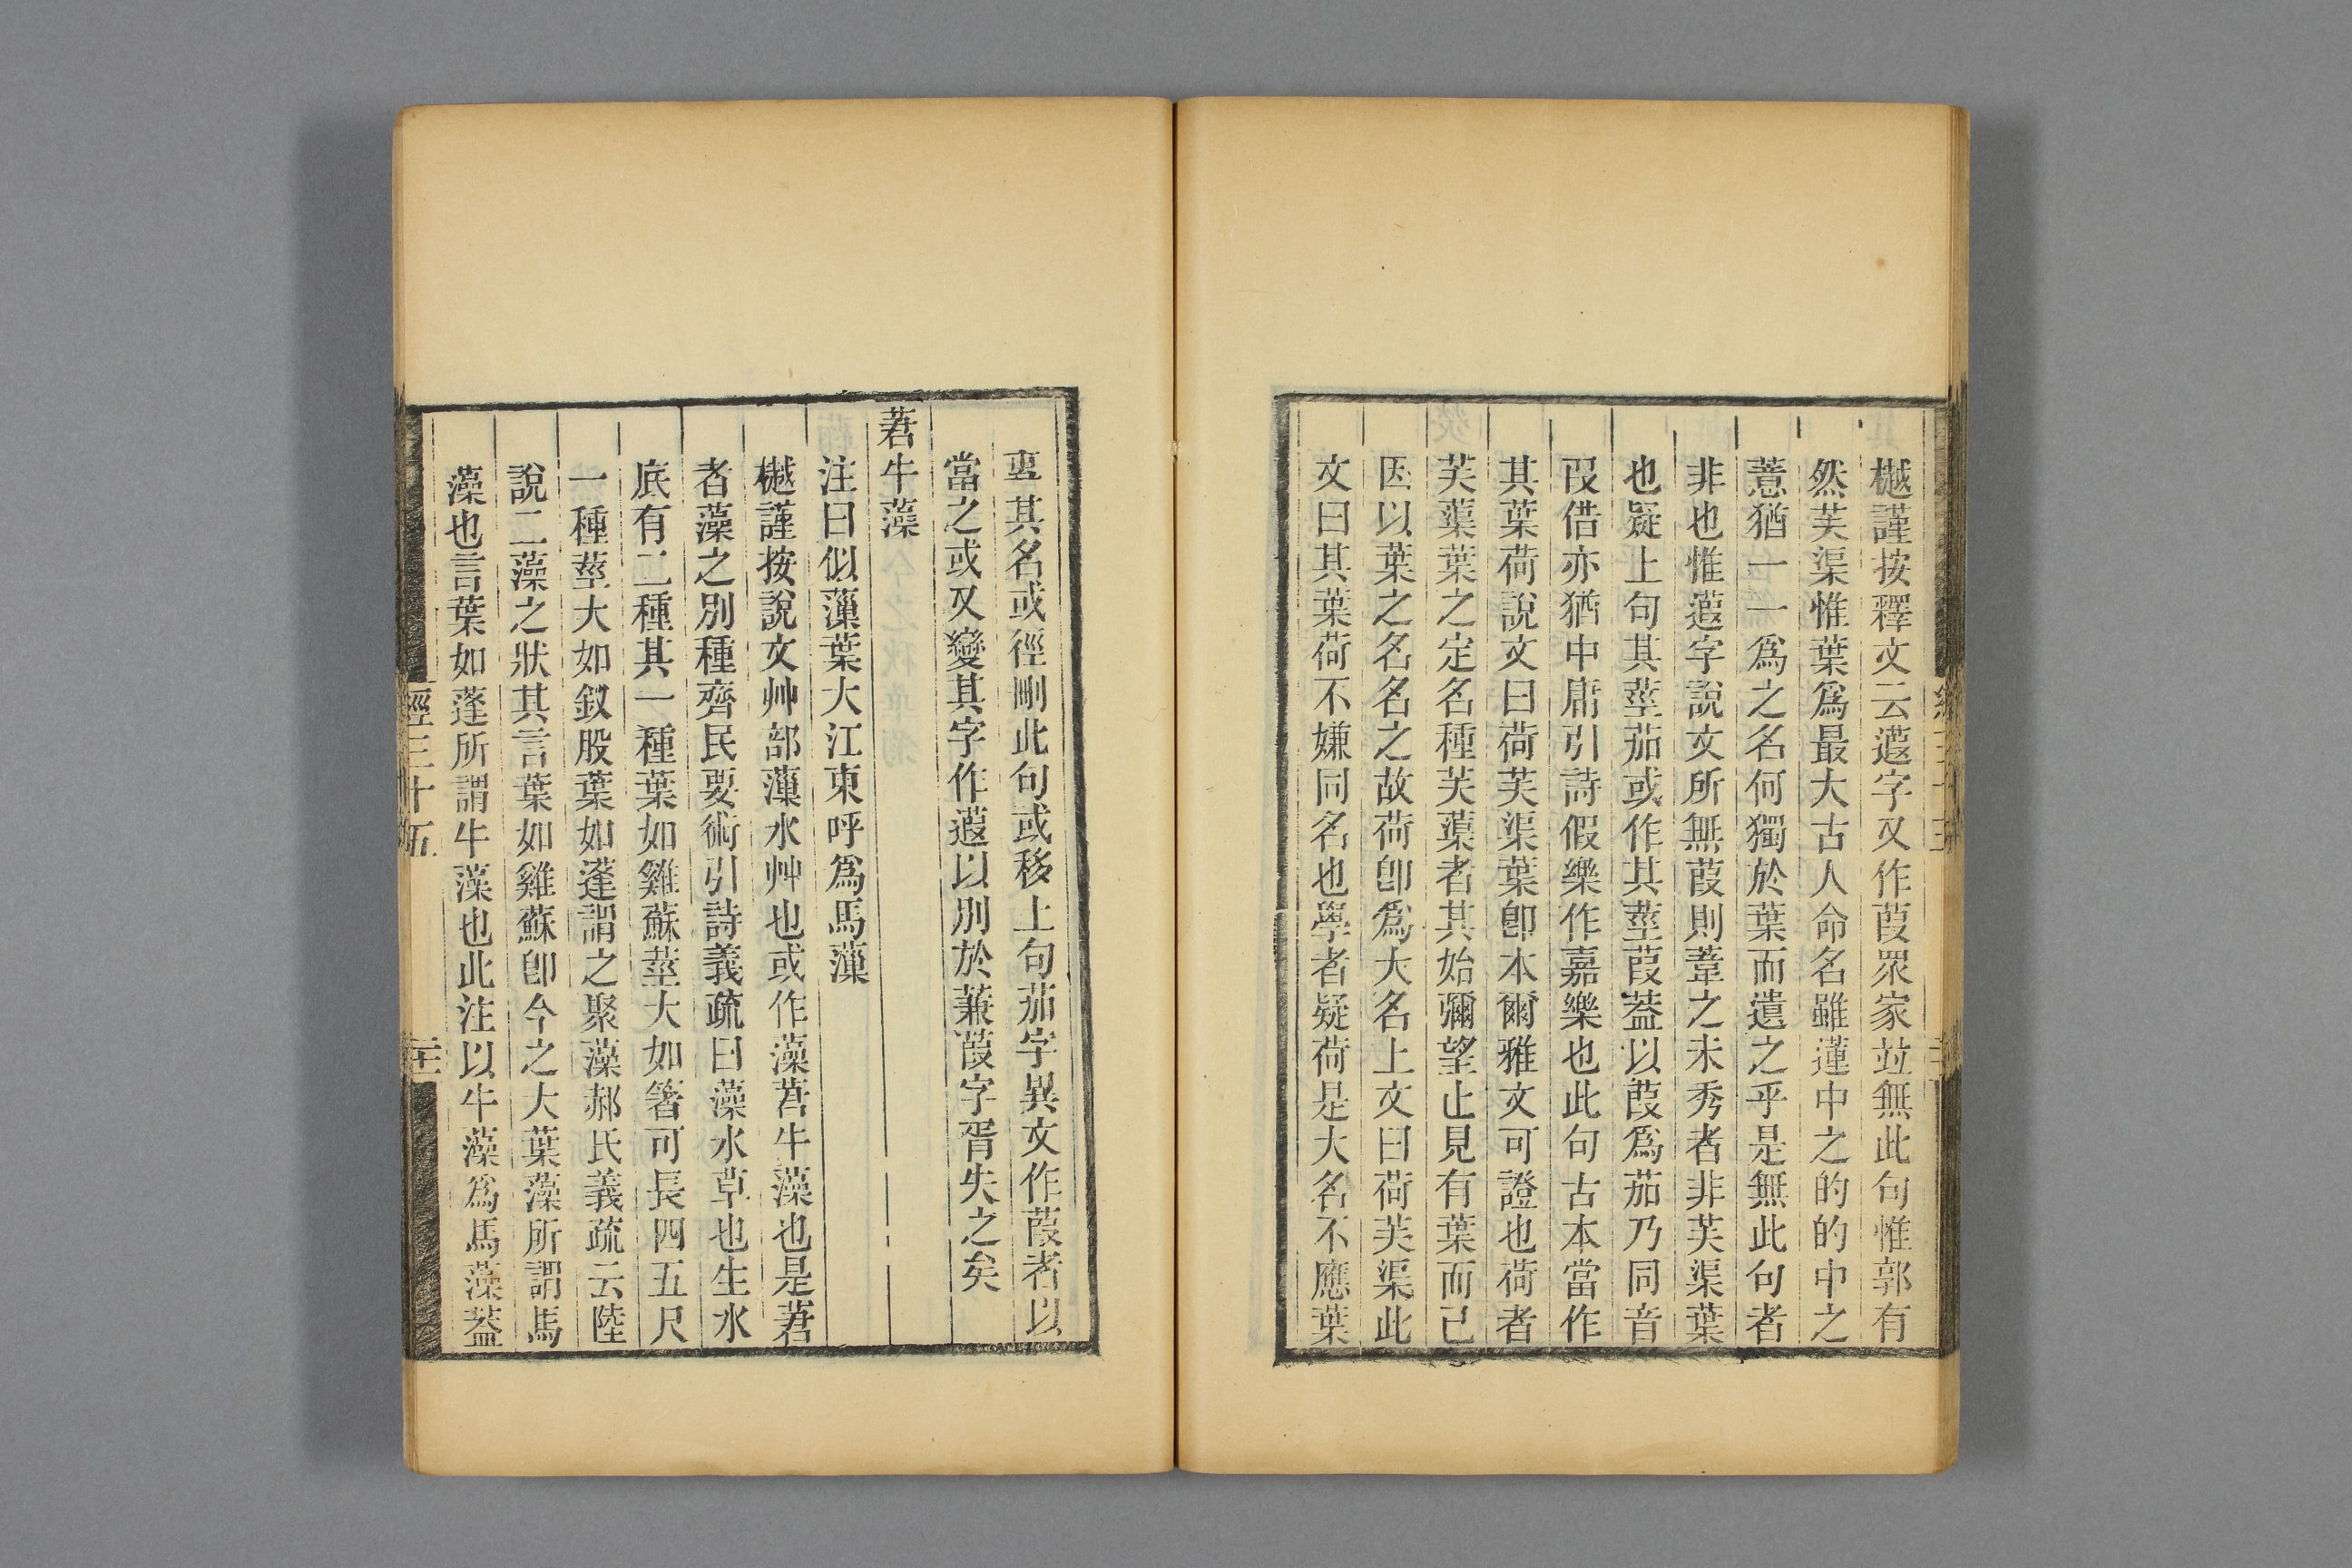 樾謹按釋文云蕸字又作葭眾家竝無此句惟郭有
然芙渠惟葉爲最大古人命名雖蓮中之的的中之
薏猶一一爲之名何獨於葉而遺之乎是無此句者
非也惟蕸字說文所無葭則葦之未秀者非芙渠葉
也疑上句其莖茄或作其莖葭葢以葭爲茄乃同音
叚借亦猶中庸引詩假樂作嘉樂也此句古本當作
其葉荷說文曰荷芙渠葉卽本爾雅文可證也荷者
芙蕖葉之定名種芙蕖者其始彌望止見有葉而已
因以葉之名名之故荷卽爲大名上文曰荷芙渠此
文曰其葉荷不嫌同名也學者疑荷是大名不應葉
更其名或徑刪此句或移上句茄字異文作葭者以
當之或又變其字作蕸以別於蒹葭字胥失之矣
莙牛藻
注曰似薻葉大江東呼爲馬薻
樾謹按說文艸部薻水艸也或作藻莙牛藻也是莙
者藻之別種齊民要術引詩義疏曰藻水草也生水
底有二種其一種葉如雞蘇莖大如箸可長四五尺
一種莖大如釵股葉如蓬謂之聚藻郝氏義疏云陸
說二藻之狀其言葉如雞蘇卽今之大葉藻所謂馬
藻也言葉如蓬所謂牛藻也此注以牛藻爲馬藻葢
經三十五